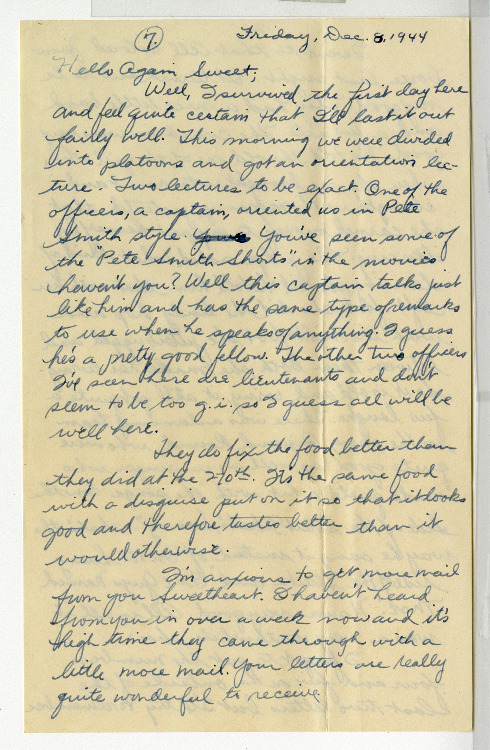 7.
Friday, Dec. 8, 1944
Hello Again Sweet;
Well, I survived the first day here
and feel quite certain that I'll last it out
fairly well. This morning we were divided
into platoons and got an orientation lec-
ture. Two lectures to be exact. One of the
officers, a captain, oriented us in Pete
Smith style. You've seen some of
the "Pete Smith Shorts" in the movies
haven't you? Well this captain talks just
like him and has the same type of remarks
to use when he speaks of anything. I guess
he's a pretty good fellow. The other two officers
I've seen here are lieutenants and don't
seem to be too g.i. so I guess all will be
well here.
They do fix the food better than
they did at the 270th. It's the same food
with a disguise put on it so that it looks
good and therefore tastes better than it
would otherwise.
I'm anxious to get more mail
from you Sweetheart. I haven't heard
from you in over a week now and it's
high time they came through with a
little more mail. Your letters are really
quite wonderful to receive.